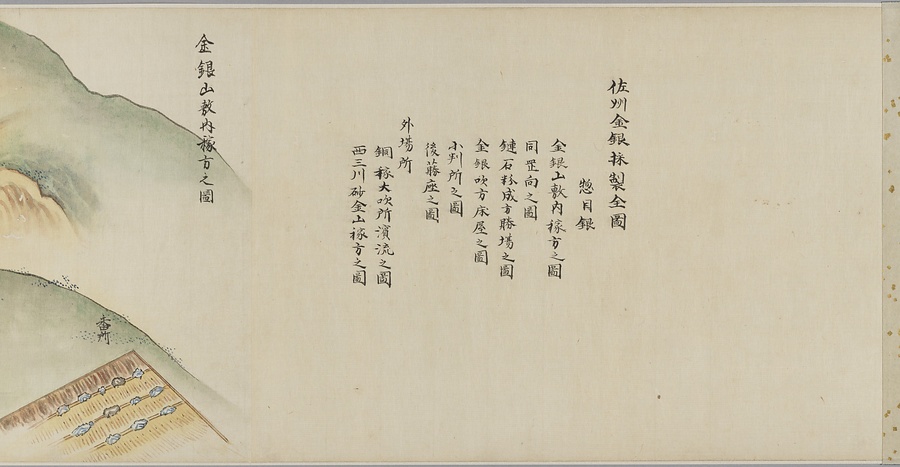 佐州金銀採製全圖
惣目録
金銀山敷内稼方之圖
同罡向之圖
鏈石粉成方勝場之圖
金銀吹方床屋之圖
小判所之圖
後藤座之圖
外場所
銅稼大吹所濱流之圖
西三川砂金山稼方之圖
金銀山敷内稼方之圖
番所